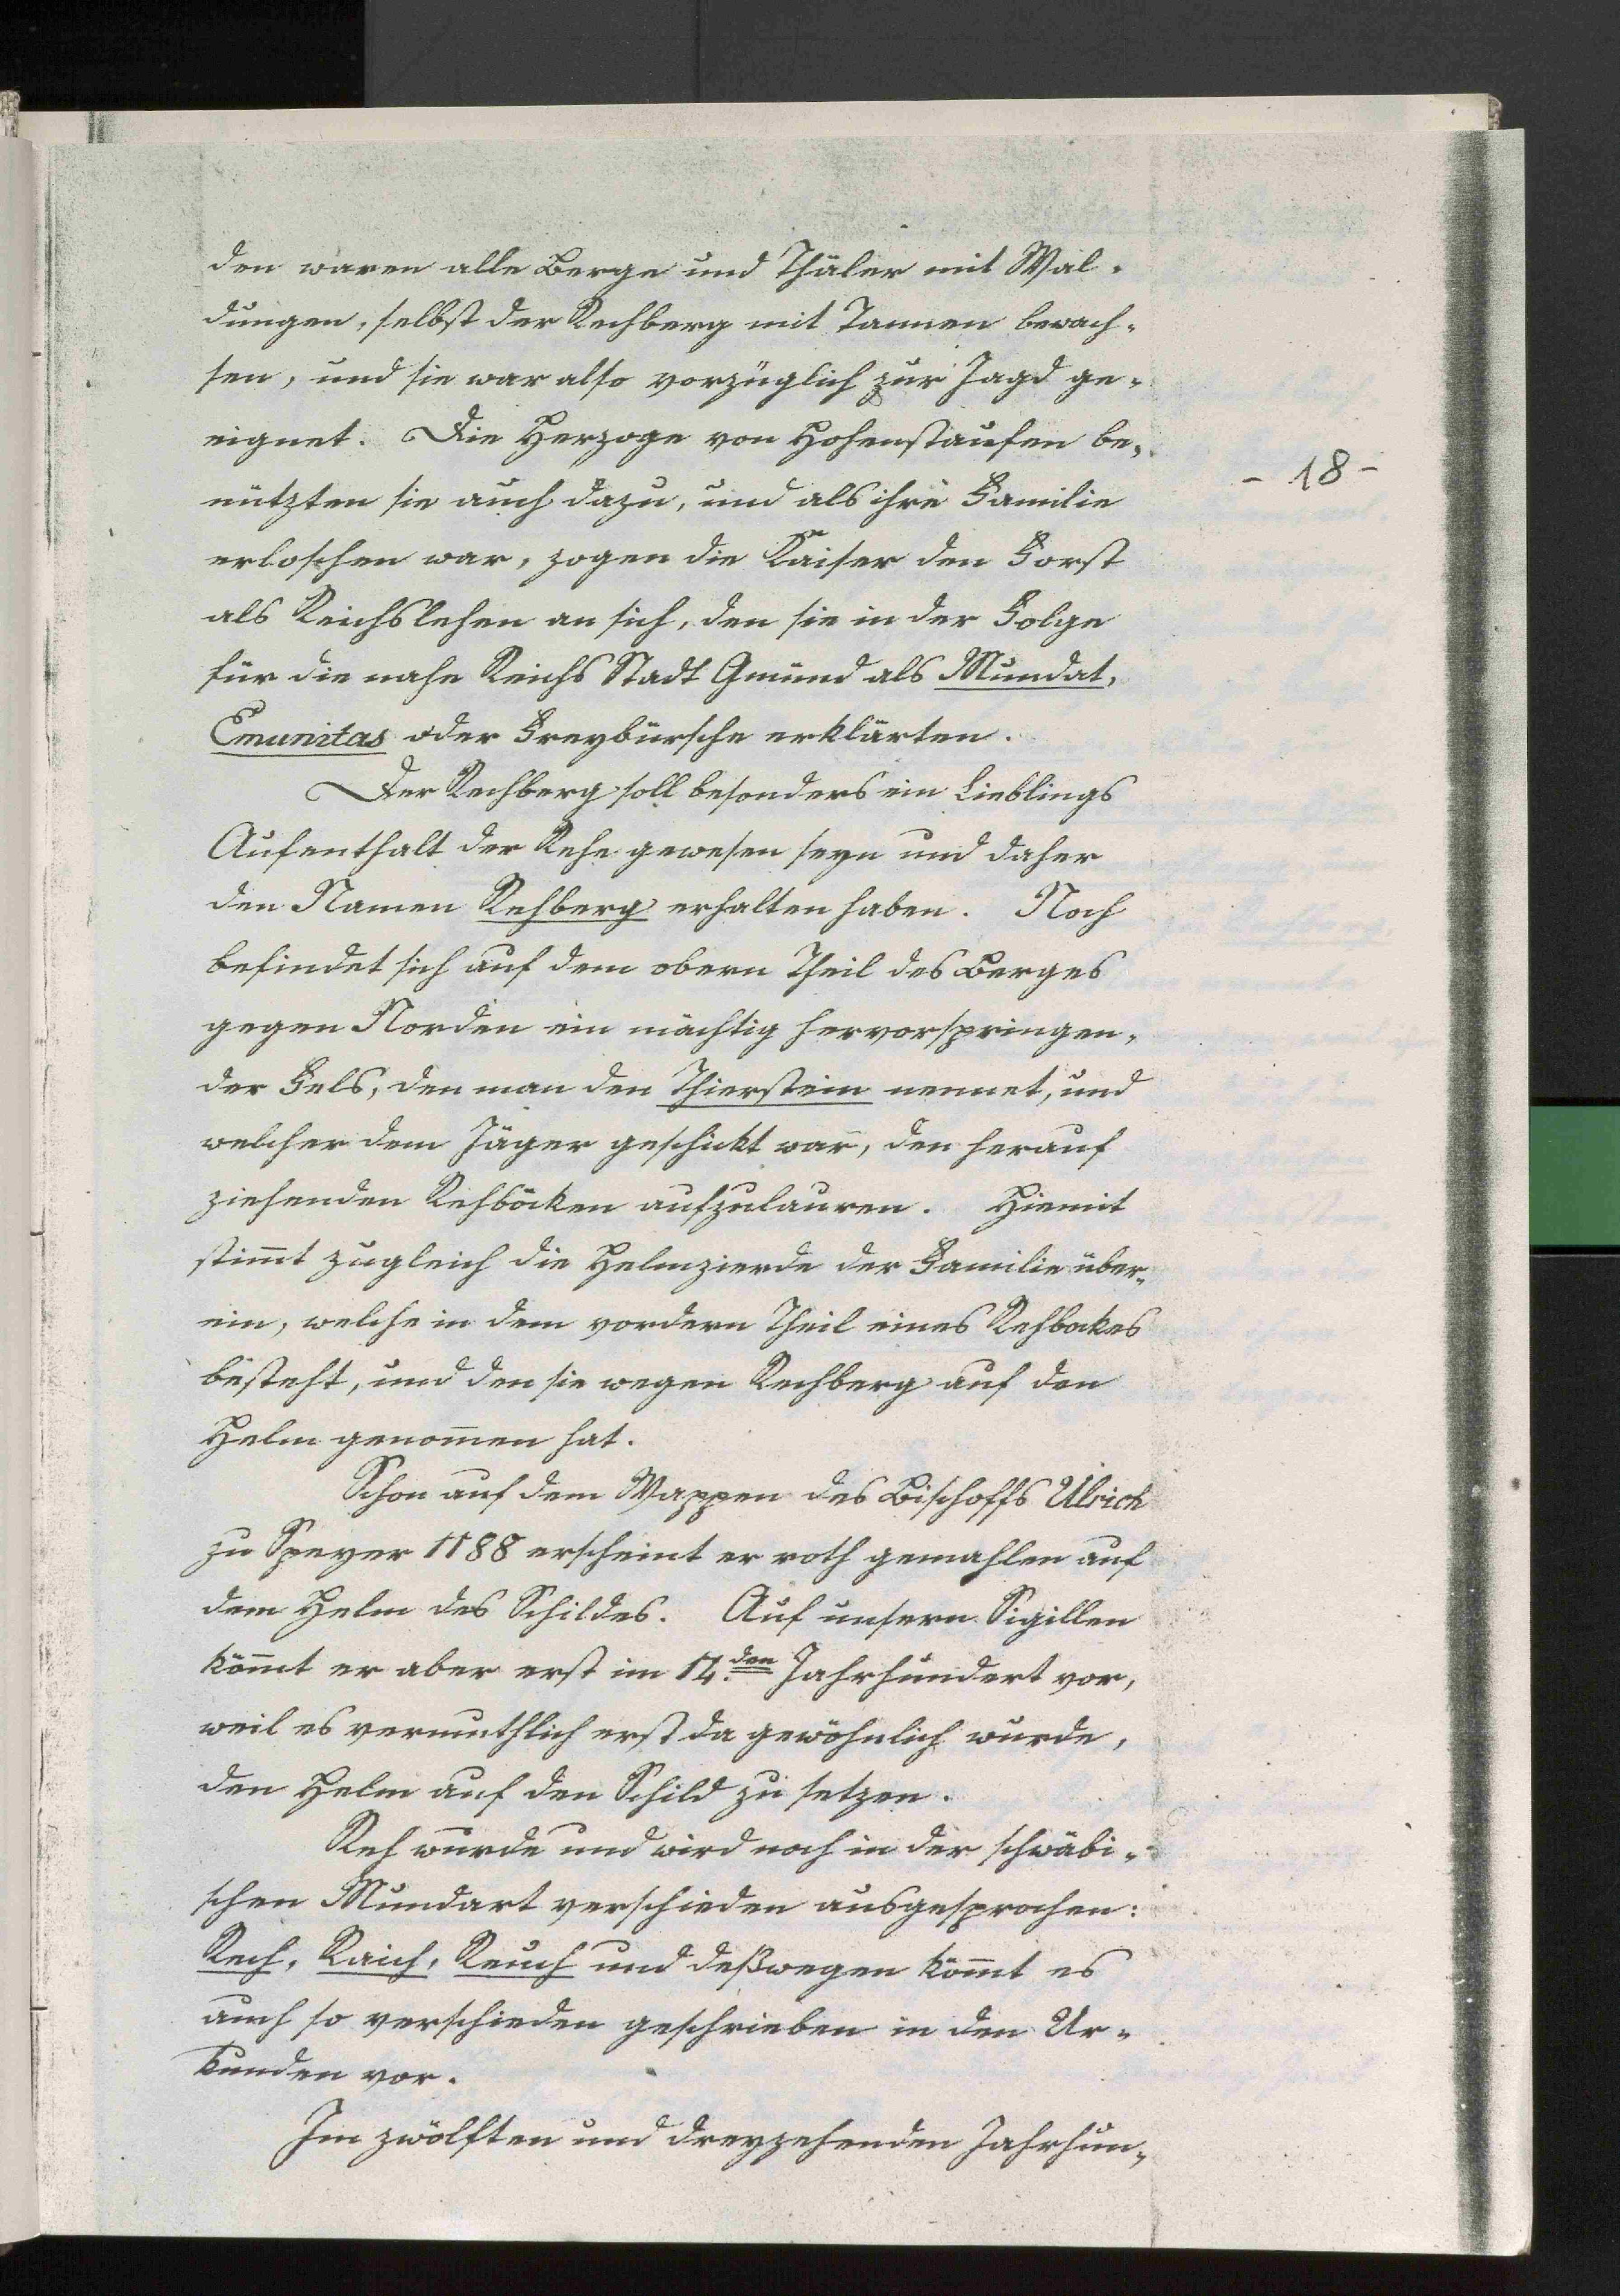 den waren alle Berge und Thäler mit Wal-
dungen, selbst der Rechberg mit Tannen bewach-
sen, und sie war also vorzüglich zur Jagd ge-
eignet. Die Herzoge von Hohenstaufen be-
- 18 -
nützten sie auch dazu, und als ihre Familie
erloschen war, zogen die Kaiser den Forst
als Reichslehen an sich, den sie in der Folge
für die nahe Reichs Stadt Gmünd als Mundat,
Emunitas oder Freybürsche erklärten.
Der Rechberg soll besonders ein Lieblings
Aufenthalt der Rehe gewesen seyn und daher
den Namen Rehberg erhalten haben. Noch
befindet sich auf dem obern Theil des Berges
gegen Norden ein mächtig hervorspringen-
der Fels, den man den Thierstein nennet, und
welcher dem Jäger geschickt war, den herauf
ziehenden Rehböcken aufzulauren. Hiemit
stim̄t zugleich die Helmzierde der Familie über-
ein, welche in dem vordern Theil eines Rehbockes
besteht, und den sie wegen Rechberg auf den
Helm genom̄en hat.
Schon auf dem Wappen des Bischoffs Ulrich
zu Speyer 1188 erscheint er roth gemahlen auf
dem Helm des Schildes. Auf unsern Sigillen
köm̄t er aber erst im 14.den Jahrhundert vor,
weil es vermuthlich erst da gewöhnlich wurde,
den Helm auf den Schild zu setzen.
Reh wurde und wird noch in der schwäbi-
schen Mundart verschieden ausgesprochen:
Rech, Raich, Reuch und deßwegen köm̄t es
auch so verschieden geschrieben in den Ur-
kunden vor.
Im zwölften und dreyzehenden Jahrhun-